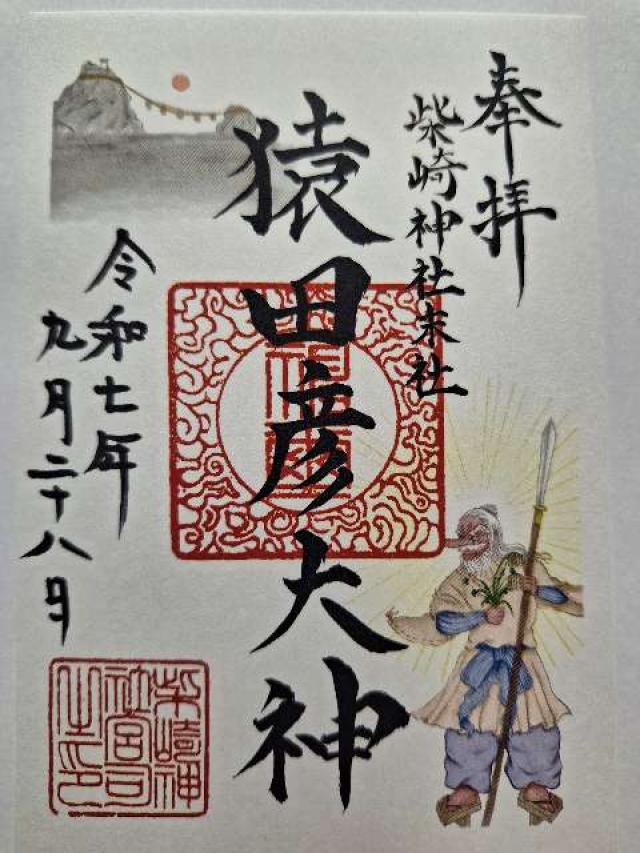 奉拝
柴崎神社末社
猿田彦大神
令和七年
九月二十八日
柴崎神
社宮司
之印